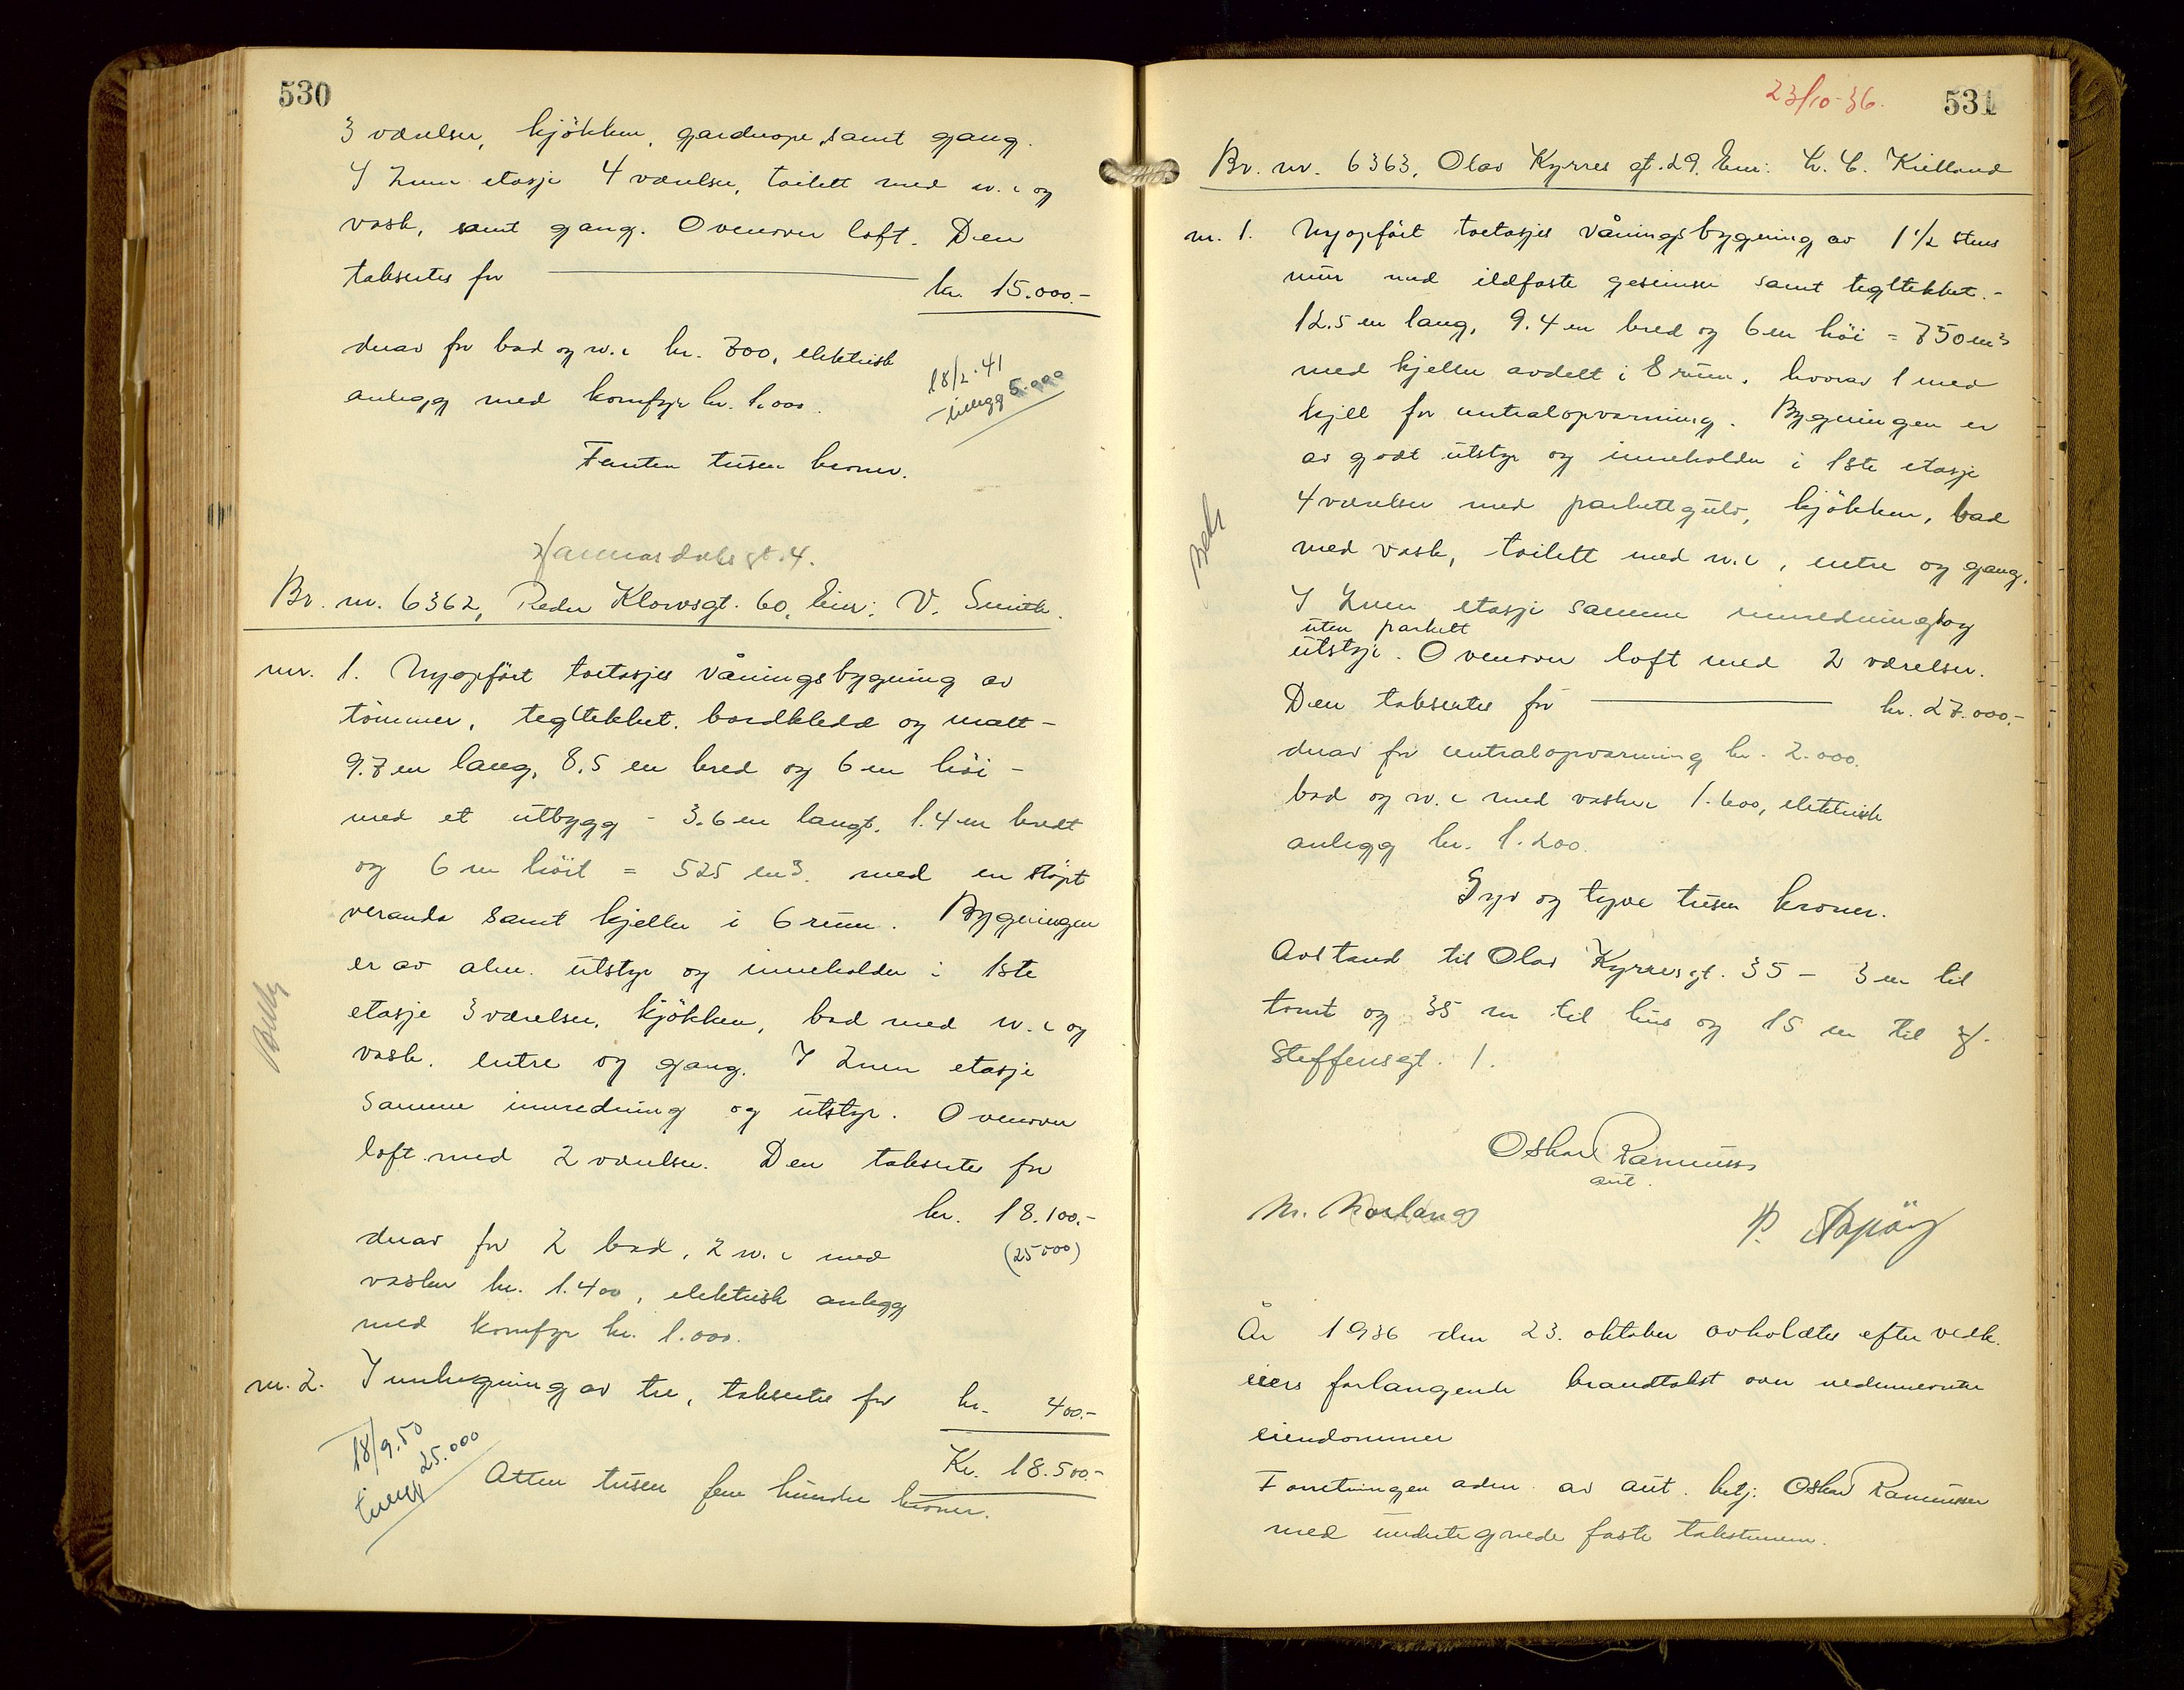 530
3 værelser, kjökken, garderope, samt gang.
I 2nen etasje 4 værelser, toilett med w.c og
vask, samt gang. Ovenover loft. Den
takseres for kr. 15.000.-
derav for bad og w.c kr. 700, elektrisk
anlegg med komfyr kr. 1.000.
18/2-41
tillegg 5.000
Femten tusen kroner.
Hammersdalsgt. 4.
Br. nr. 6362, Peder Klowsgt. 60, Eier: V. Smith.
nr. 1. Nyopfört toetasjes våningsbygning av
tömmer, tegltekket, bordkledd og malt -
9.7 m lang, 8.5 m bred og 6 m höi -
med et utbygg - 3.6 m langt, 1.4 m bredt
og 6 m höit = 525 m3. med en stöpt
veranda samt kjeller i 6 rum. Bygningen
er av alm. utstyr og inneholder i 1ste
etasje 3 værelser, kjökken, bad med w.c og
vask, entre og gang. I 2nen etasje
samme innredning og utstyr. Ovenover
loft med 2 værelser. Den takseres for
kr. 18.100.-
(25000)
derav for 2 bad, 2 w.c med
vasker kr. 1.400, elektrisk anlegg
med komfyr kr. 1.000.
nr. 2. Innhegning av tre, takseres for kr. 400.-
Kr. 18.500.-
18/9.50
tillegg 25.000
Atten tusen fem hundre kroner.
23/10-36.
531
Br. nr. 6363, Olav Kyrres gt. 29. Eier: Kielland
nr. 1. Nyopfört toetasjes våningsbygning av 1 1/2 stens
mur med ildfaste gesimser samt tegltekket.-
12.5 m lang, 9.4 m bred og 6 m höi = 750 m3
med kjeller avdelt i 8 rum, hvorav 1 med
kjell for sentralopvarming. Bygningen er
av godt utstyr og inneholder i 1ste etasje
4 værelser med parkettgulv, kjökken, bad
med vask, toilett med w.c, entre og gang.
I 2nen etasje samme innredning og
uten parkett
utstyr. Ovenover loft med 2 værelser.
Den takseres for kr. 27.000.-
derav for sentralopvarming kr. 2.000.
bad og w.c med vasker 1.600, elektrisk
anlegg kr. 1.200.
Syv og tyve tusen kroner.
Avstand til Olav Kyrresgt. 35 - 3 m til
tomt og 35 m til hus og 15 m til H.
Steffensgt. 1.
Oskar Rasmussen
aut.
M. Morland
År 1936 den 23. oktober avholdtes efter vedk.
eiers forlangende brandtakst over nedennevnte
eiendommer
Forretningen adm. av aut. betj. Oskar Rasmussen
med undertegnede faste takstmenn.